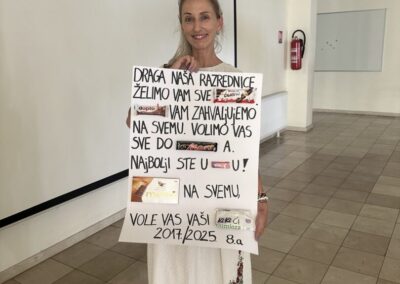 DRAGA NAŠA RAZREDNICE
ŽELIMO VAM SVE
duplo VAM ZAHVALJUJEMO
NA SVEMU. VOLIMO VAS
SVE DO A.
NAJBOLJI STE U U!
NA SVEMU,
VOLE VAS VAŠI
2017./2025. 8.a